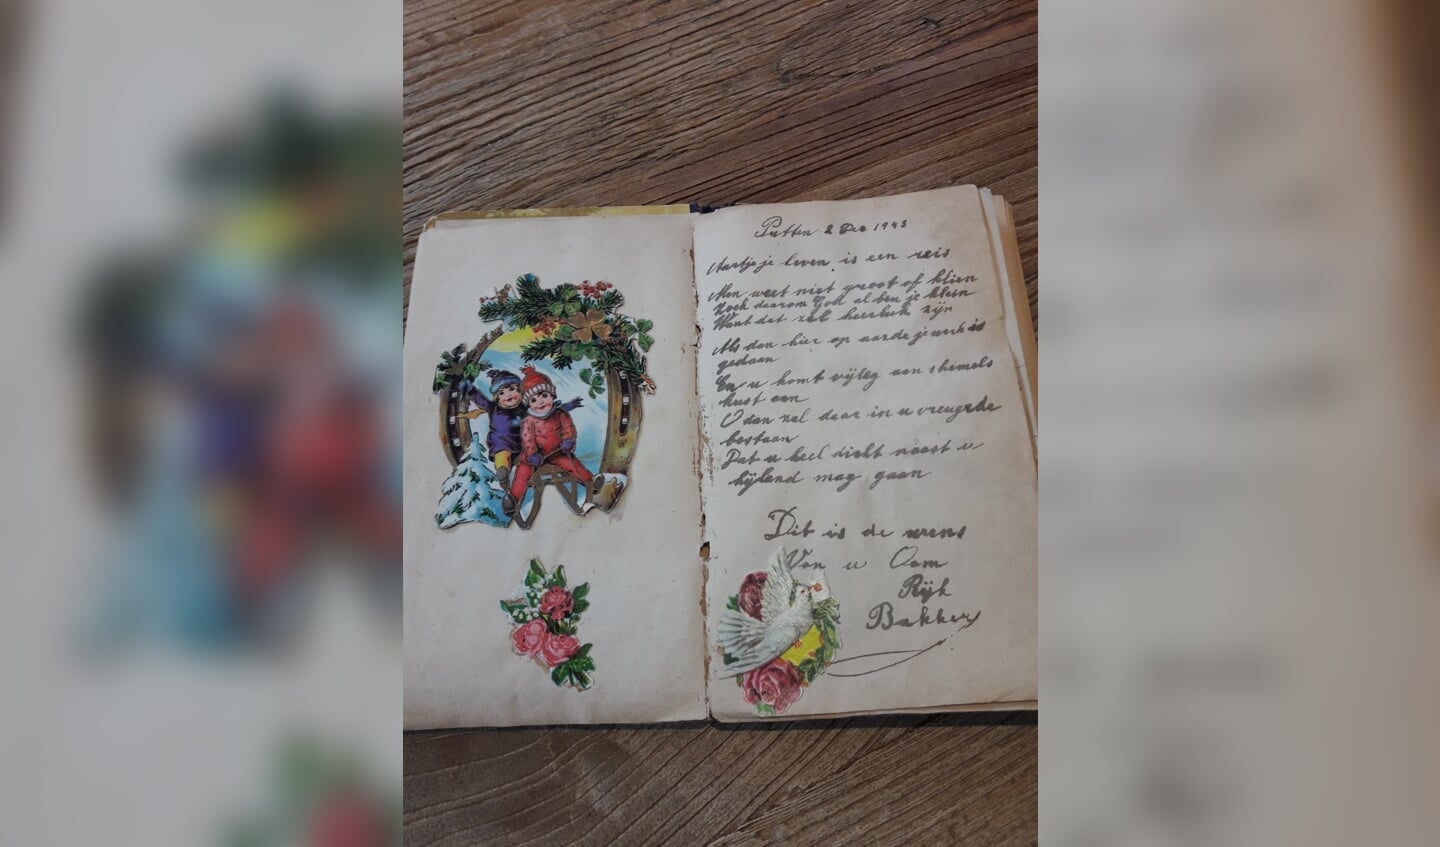 Putten 2 Dec 1943
Aartje je leven is een reis
Men weet niet groot of klien
Zoek daarom God al ben je klein
Want dat zal heerlijk zijn
Als dan hier op aarde je werk is
gedaan
En u komt vijleg aan s hemels
kust aan
O dan zal daar in u vreugde
bestaan
Dat u heel dicht naast u
hijland mag gaan
Dit is de wens
Van u Oom
Rijk
Bakker